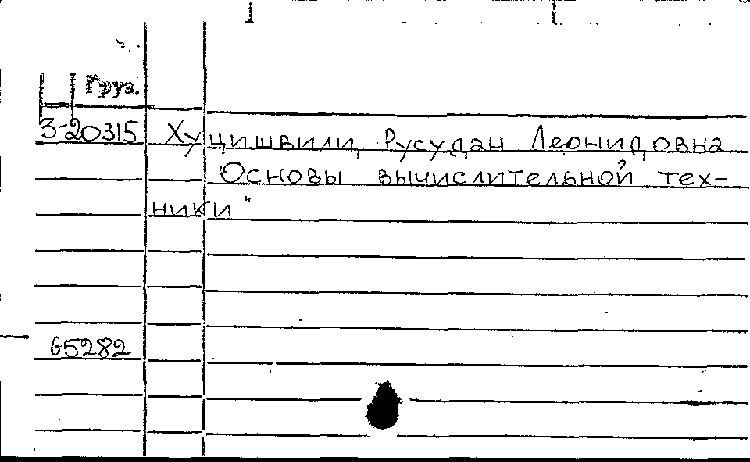 Груз.
3-20315 Хуцишвили, Русудан Леонидовна
"Основы вычислительной тех-
ники"
65282